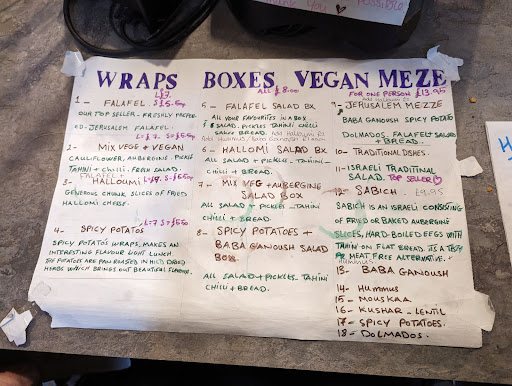 Thank you possible
WRAPS
L £7.
1- FALAFEL. S £5.50p
OUR TOP SELLER. FRESHLY PREPER-
ED. JERUSALEM FALAFEL.
L-£7. S £5.50p
2- MIX VEGE + VEGAN
CAULIFLOWER, AUBERGINE. PICKLE
TAHINI + CHILLI. FRESH SALAD.
FALAFEL +
3- HALLOUMI L-£7. S £5.50p
GENEROUS CHUNK SLICES OF FRIED
HALLOMI CHEESE.
L-£7 S £5.50
4- SPICY POTATOS
SPICY POTATOS WRAPS, MAKES AN
INTERESTING FLAVOUR LIGHT LUNCH.
THE POTATOES ARE PAN ROASTED IN MILD DRIED
HERBS WHICH BRINGS OUT BEAUTIFUL FLAVOUR.
BOXES
ALL £8.00
5- FALAFEL SALAD BX
ALL YOUR FAVOURITES IN A BOX
SALAD. PICKLES. TAHINI CHILLI
SAUCE BREAD. Add Halloumi £1
Add Hummus/Baba Ganoush
6- HALLOMI SALAD BX
ALL SALAD + PICKLES - TAHINI-
CHILLI + BREAD.
7- MIX VEG + AUBERGING
SALAD BOX
ALL SALAD + PICKLES - TAHINI
CHILLI + BREAD.
8- SPICY POTATOES +
BABA GANOUSH SALAD
BOX.
ALL SALAD + PICKLES - TAHINI
CHILLI + BREAD.
VEGAN MEZE
FOR ONE PERSON £13.95
Add Halloumi £1
9- JERUSALEM MEZZE
BABA GANOUSH SPICY POTATO
DOLMADOS. FALAFEL + SALAD
+ BREAD.
10- TRADITIONAL DISHES.
11- ISRAELI TRADITIONAL
SALAD TOP SELLER
12- SABICH. £9.95
SABICH IS AN ISRAELI CONSISTING
OF FRIED OR BAKED AUBERGINE
SLICES, HARD-BOILED EGGS WITH
TAHIN ON FLAT BREAD. ITS A TASTY
MEAT FREE ALTERNATIVE.
HUMMUS
13- BABA GANOUSH
14- HUMMUS
15- MOUSKAA
16- KUSHAR - LENTIL
17- SPICY POTATOES.
18- DOLMADOS.